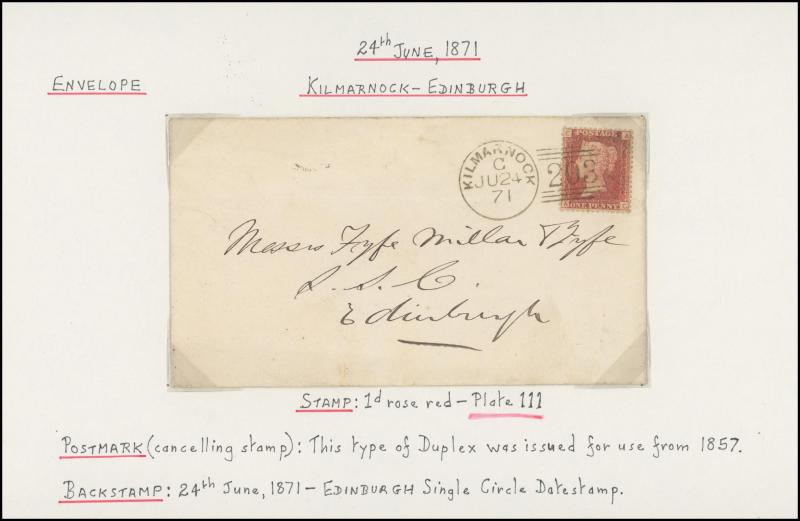 24th June, 1871
ENVELOPE
KILMARNOCK - EDINBURGH
KILMARNOCK
C
JU 24
71
203
POSTAGE
ONE PENNY
Messrs Fyfe Millar & Fyfe
S. S. C.
Edinburgh
STAMP: 1d rose red - Plate 111
POSTMARK (cancelling stamp): This type of Duplex was issued for use from 1857.
BACKSTAMP: 24th June, 1871 - EDINBURGH Single Circle Datestamp.